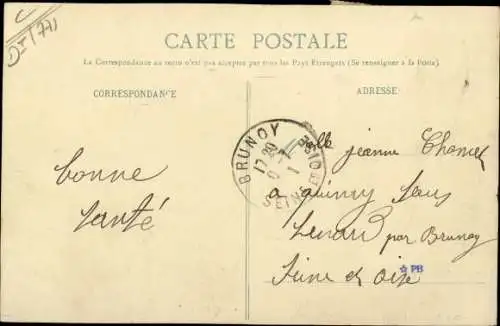 CARTE POSTALE
La Correspondance au recto n'est pas acceptée par tous les Pays Étrangers (Se renseigner à la Poste).
CORRESPONDANCE
ADRESSE
bonne
santé
BRUNOY
SEINE
elle jeanne
a quincy sous
Senart par Brunoy
Seine et Oise
PB